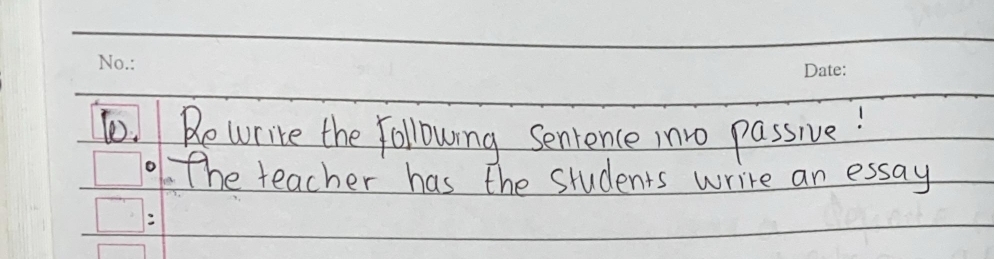 No.:
Date:
10. Rewrite the Following Sentence into passive!
The teacher has the students write an essay
: